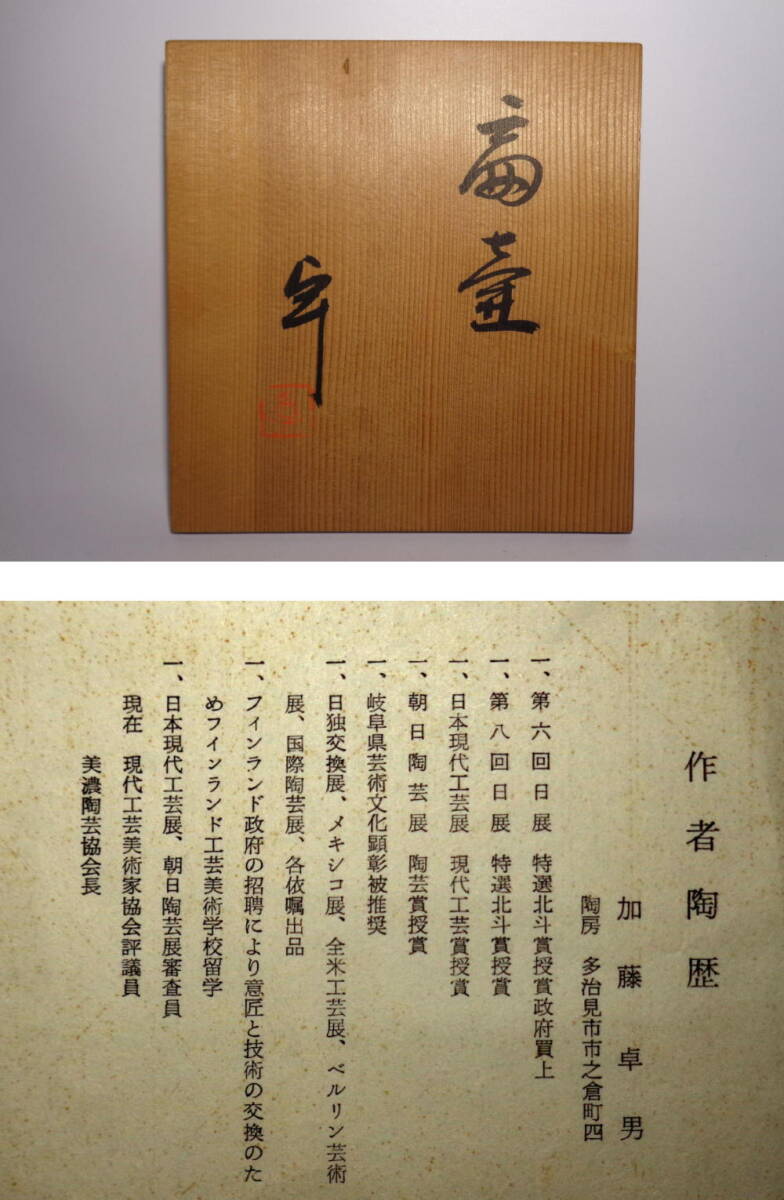 扁壷
卓
作者陶歴
加藤卓男
陶房 多治見市市之倉町四
一、第六回日展 特選北斗賞授賞政府買上
一、第八回日展 特選北斗賞授賞
一、日本現代工芸展 現代工芸賞授賞
一、朝日陶芸展 陶芸賞授賞
一、岐阜県芸術文化顕彰被推奨
一、日独交換展、メキシコ展、全米工芸展、ベルリン芸術
展、国際陶芸展、各依嘱出品
一、フィンランド政府の招聘により意匠と技術の交換のた
めフインランド工芸美術学校留学
一、日本現代工芸展、朝日陶芸展審査員
現在 現代工芸美術家協会評議員
美濃陶芸協会長